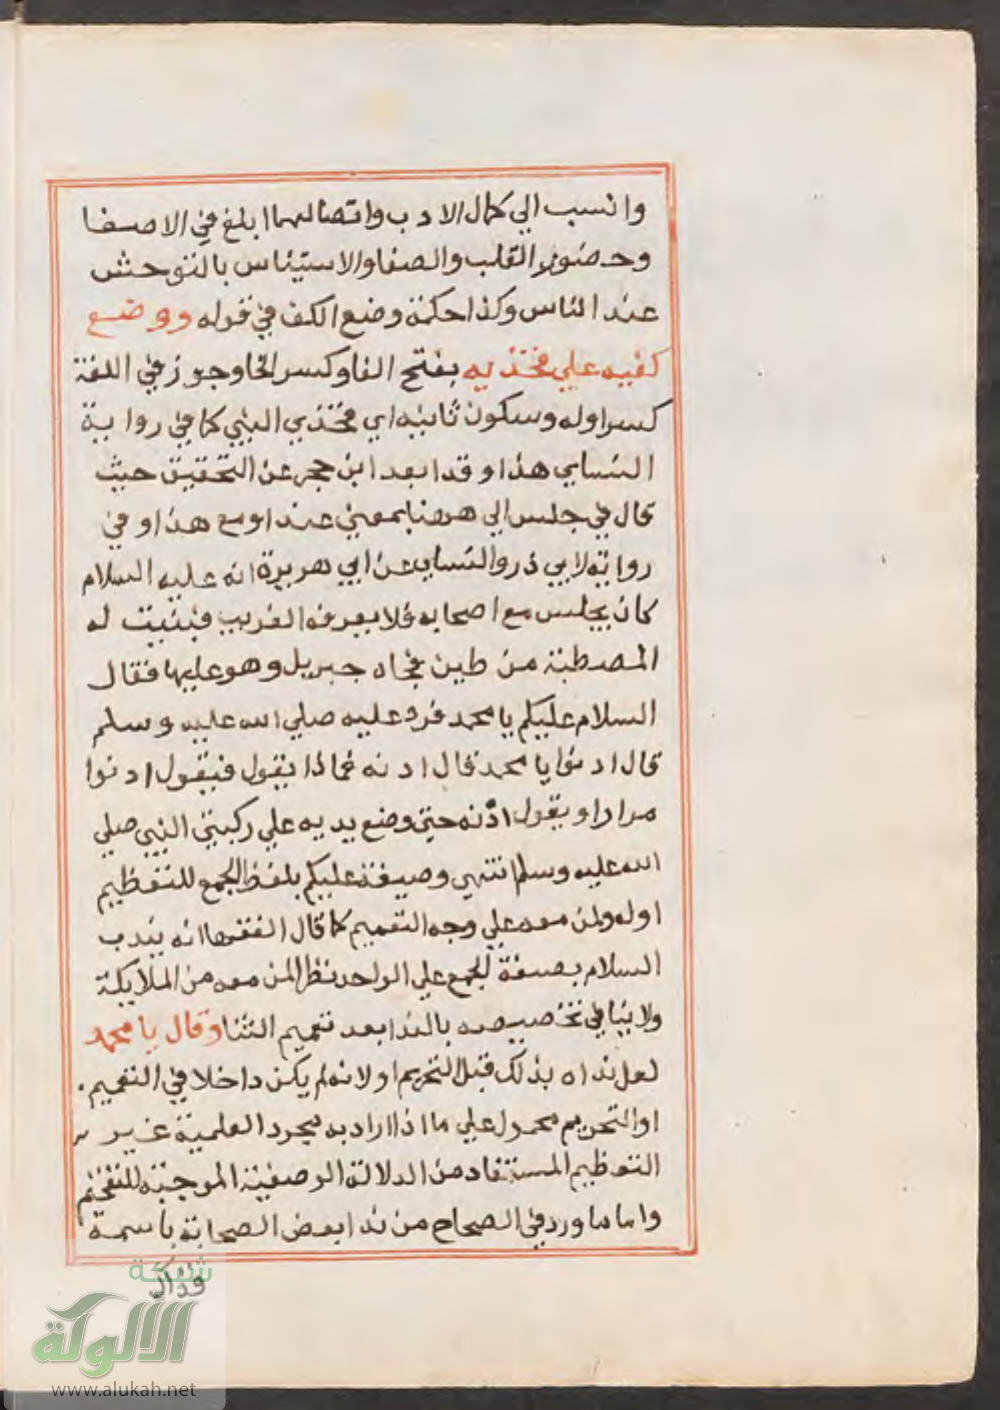 وانسب الي كمال الادب واتصالهما ابلغ في الاصغا
وحضور القلب والصفا والاستيناس بالتوحش
عند الناس وكذا حكمة وضع الكف في قوله ووضع
كفيه علي فخذيه بفتح الفا وكسر الخا وجوز في اللغة
كسر اوله وسكون ثانيه اي فخذي النبي كما في رواية
النساي هذا وقد ابعد ابن حجر عن التحقيق حيث
قال في جلس الي هو هنا بمعني عند او مع هذا وفي
رواية لابي ذر والنساي عن ابي هريرة انه عليه السلام
كان يجلس مع اصحابه فلا يعرفه الغريب فبنيت له
المصطبة من طين فجاه جبريل وهو عليها فقال
السلام عليكم يا محمد فرد عليه صلي الله عليه وسلم
قال ادنوا يا محمد قال ادنه فماذا يقول فيقول ادنوا
مرارا ويقول ادنه حتي وضع يديه علي ركبتي النبي صلي
الله عليه وسلم انتهي وصيغة عليكم بلفظ الجمع للتعظيم
او له ولمن معه علي وجه التعميم كما قال الفقها انه يندب
السلام بصيغة الجمع علي الواحد نظرا لمن معه من الملايكة
ولا ينافي تخصيصه بالندا بعد تعميم الثنا وقال يا محمد
لعل نداه بذلك قبل التحريم او لانه لم يكن داخلا في التعميم
او التحريم محمول علي ما اذا اراد به مجرد العلمية غير
التعظيم المستفاد من الدلالة الوصفية الموجبة للتفخيم
واما ما ورد في الصحاح من ندا بعض الصحابة باسمه
فذاك
شبكة
الألوكة
www.alukah.net